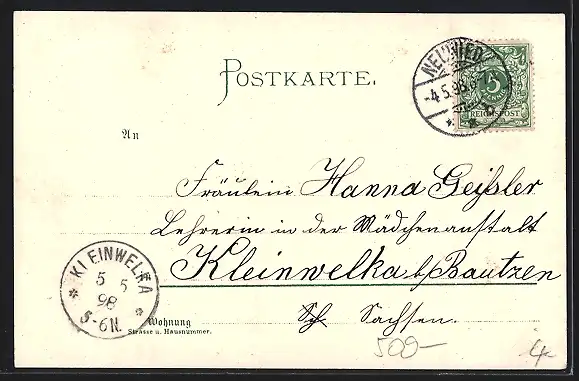 POSTKARTE.
NEUWIED
-4.5.98.
5
REICHSPOST
An
Fräulein Hanna Geißler
Lehrerin in der Mädchenanstalt
Kleinwelka b/Bautzen
Sachsen.
KLEINWELKA
5 5
98
5-6N.
Wohnung
Strasse u. Hausnummer.
500-
4-